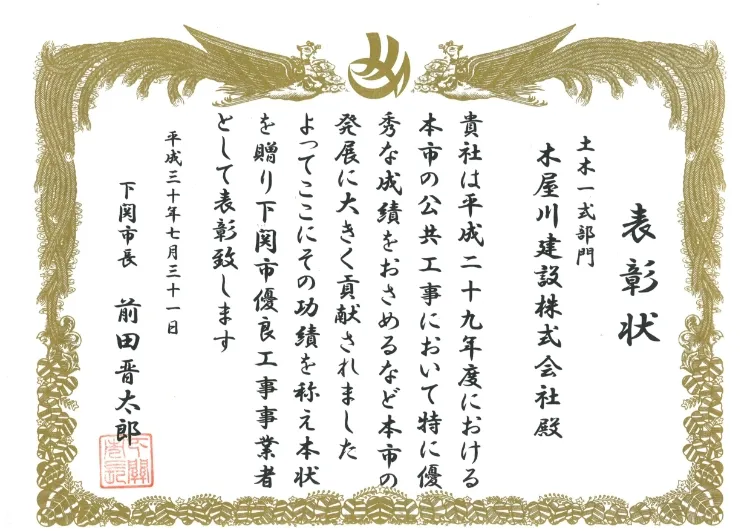 表彰状
土木一式部門
木屋川建設株式会社殿
貴社は平成二十九年度における
本市の公共工事において特に優
秀な成績をおさめるなど本市の
発展に大きく貢献されました
よってここにその功績を称え本状
を贈り下関市優良工事事業者
として表彰致します
平成三十年七月三十一日
下関市長 前田晋太郎